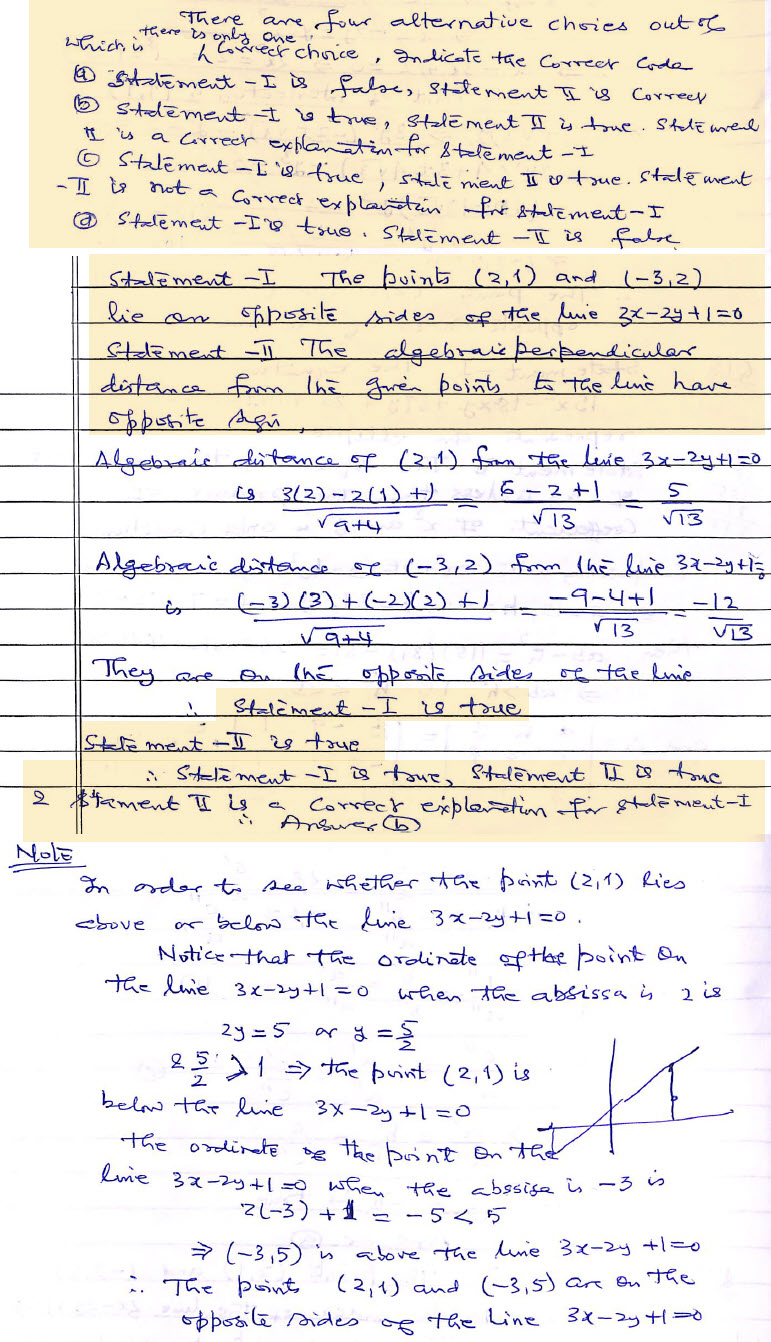 There are four alternative choies out of
which is there is only one correct choice, Indicate the correct code
(a) Statement-I is false, statement II is correct
(b) Statement-I is true, Statement II is true. Statement
II is a correct explanation for statement-I
(c) Statement-I is true, statement II is true. Statement
-II is not a correct explanation for statement-I
(d) Statement-I is true. Statement-II is false
Statement-I The points (2,1) and (-3,2)
lie on opposite sides of the line 3x-2y+1=0
Statement-II The algebraic perpendicular
distance from the given points to the line have
opposite sign,
Algebraic distance of (2,1) from the line 3x-2y+1=0
is 3(2)-2(1)+1/√9+4 = 6-2+1/√13 = 5/√13
Algebraic distance of (-3,2) from the line 3x-2y+1=0
is (-3)(3)+(-2)(2)+1/√9+4 = -9-4+1/√13 = -12/√13
They are on the opposite sides of the line
∴ Statement-I is true
Statement-II is true
∴ Statement-I is true, Statement II is true
2 Stament II is a correct explanation for statement-I
∴ Answer (b)
Note
In order to see whether the point (2,1) lies
above or below the line 3x-2y+1=0.
Notice that the ordinate of the point on
the line 3x-2y+1=0 when the absissa is 2 is
2y=5 or y=5/2
2 5/2 > 1 ⇒ the point (2,1) is
below the line 3x-2y+1=0
the ordinate of the point on the
line 3x-2y+1=0 when the abssisa is -3 is
2(-3)+1 = -5 < 5
⇒ (-3,5) is above the line 3x-2y+1=0
∴ The points (2,1) and (-3,5) are on the
opposite sides of the line 3x-2y+1=0